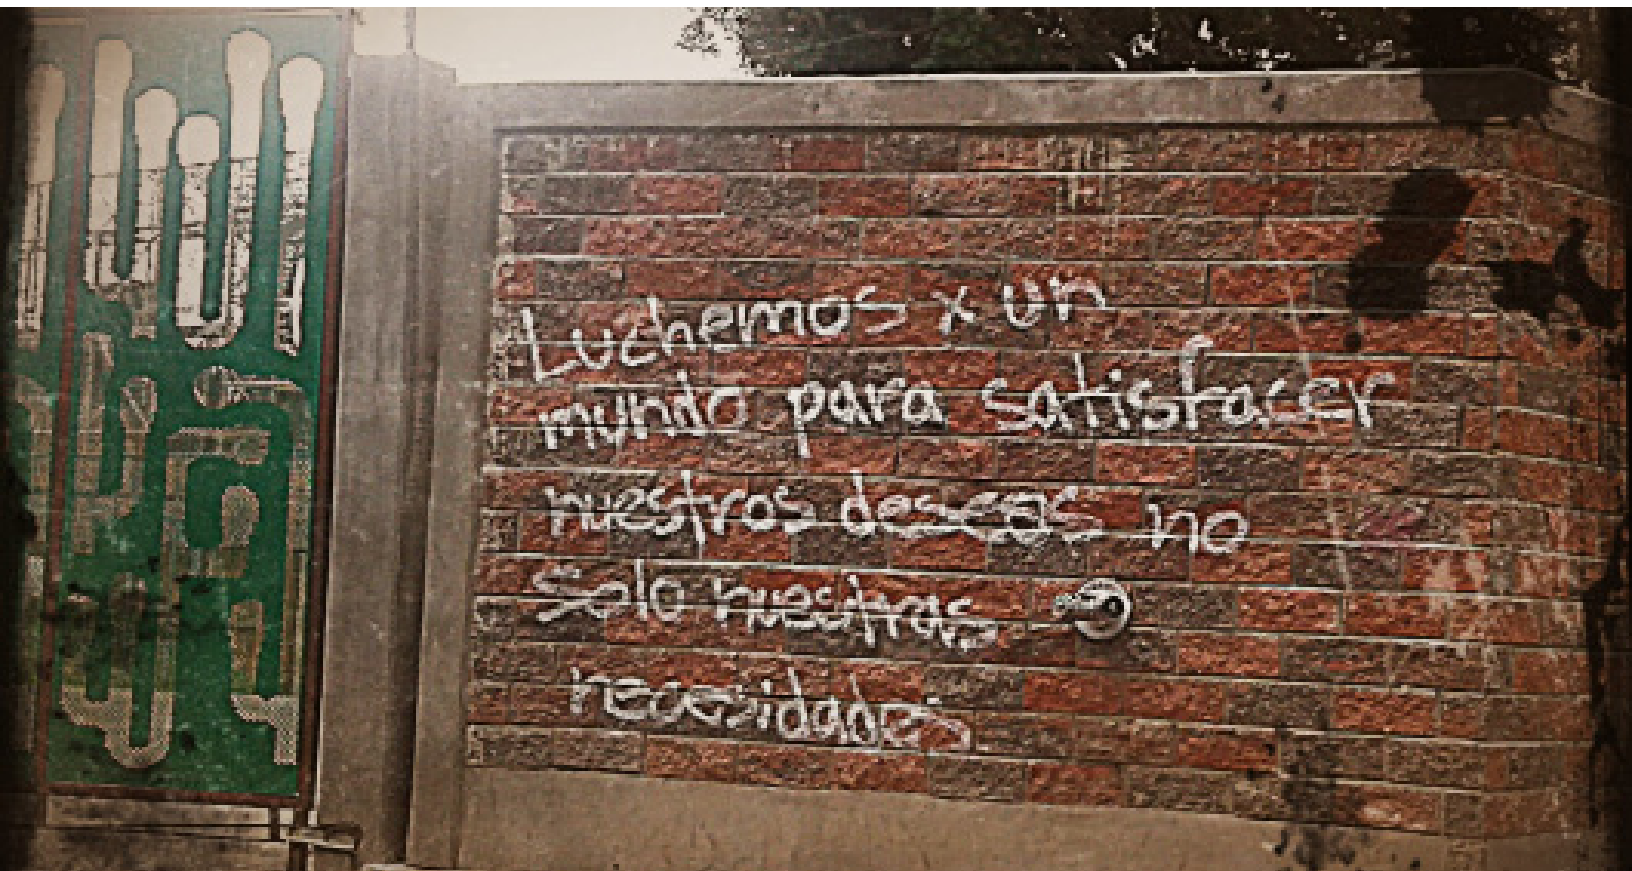 Luchemos x un
mundo para satisfacer
nuestros deseos no
solo nuestras
necesidades